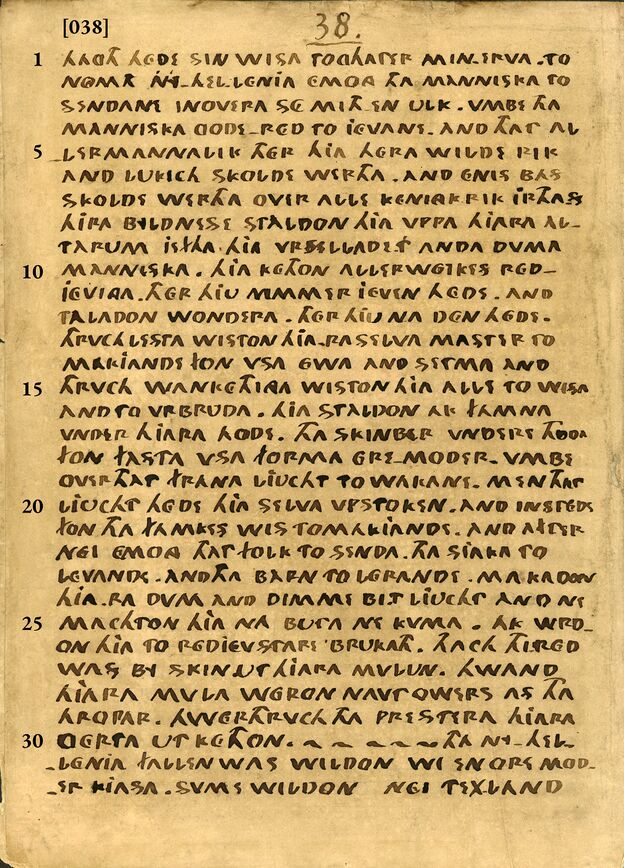 [038]
38.
1 HACH HEDE SIN WISA TOGHATER MINERVA. TO
NOMATH NY-HELLENIA EMONG THA MANNISKA TO
SENDANE IN OVERA SE MITH EN ULK. VMBE THA
MANNISKA GODE RED TO IEVANE. AND THAT AL
5 LERMANNALIK THER HIA HERA WILDE RIK
AND LUKICH SKOLDE WERTHA. AND ENIS BAS
SKOLDE WERTHA OVER ALLE KENINGKRIK IRTHAS
HIRA BYLDNESE STALDON HIA VPPA HIARA AL-
TARUM IEFTHA HIA VRSELLADET ANDA DUMA
10 MANNISKA. HIA KETHON ALLERWEIKES RED-
IEVINGA. THER HIU NIMMER IEVEN HEDE. AND
TALADON WONDERA. THER HIU NA DEN HEDE.
THRVCH LESTA WISTON HIA-RA SELVA MASTER TO
MAKIANDE FON VSA EWA AND SETMA AND
15 THRVCH WANKETHINGA WISTON HIA ALLE TO WISA
AND TO VRBRUDA. HIA STALDON AK FAMNA
VNDER HIARA HODE. THA SKINBER VNDERE HODA
FON FASTA VSA FORMA GRE-MODER. VMBE
OVER THAT FRANA LIUCHT TO WAKANE. MEN THAT
20 LIUCHT HEDE HIA SELVA VPSTOKEN. AND INSTEDE
FON THA FAMKES WIS TO MAKIANDE. AND AFTER
NEI EMONG THAT FOLK TO SENDA. THA SIAKA TO
LEVANDE. AND THA BARN TO LERANDE. MAKADON
HIA-RA DUM AND DIMME BIT LIUCHT AND NE
25 MACHTON HIA NA BUTA NE KUMA. AK WRD-
ON HIA TO REDIEVSTARE BRUKATH. THACH THI RED
WAS BY SKIN UT HIARA MVLUN. HWAND
HIARA MVLA WERON NAVT OWERS AS THA
HROPAR. HWERTHRVCH THA PRESTERA HIARA
30 GERTA UT KETHON. THA NY-HEL-
LENIA FALLEN WAS WILDON WI EN ORE MOD-
ER KIASA. SVME WILDON NEI TEXLAND